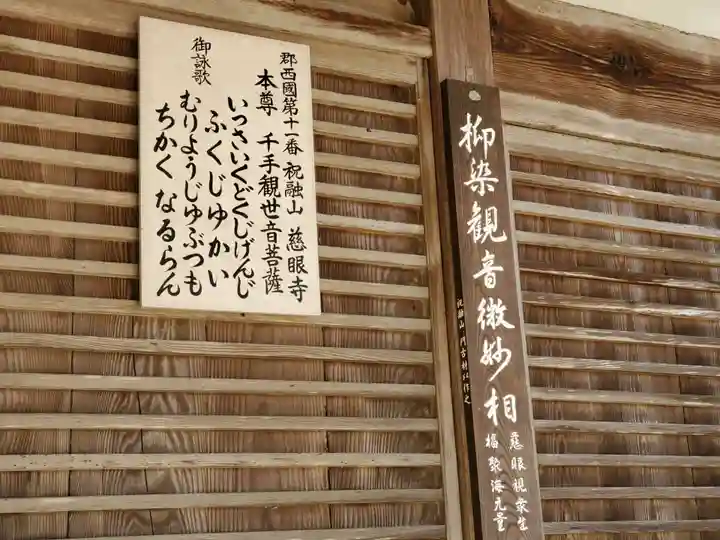 郡西國第十一番 祝融山 慈眼寺
本尊 千手観世音菩薩
いっさいくどくじげんじ
ふくじゅかい
むりようじゅぶつも
ちかくなるらん
御詠歌
柳染観音微妙相
慈眼視衆生
福聚海无量